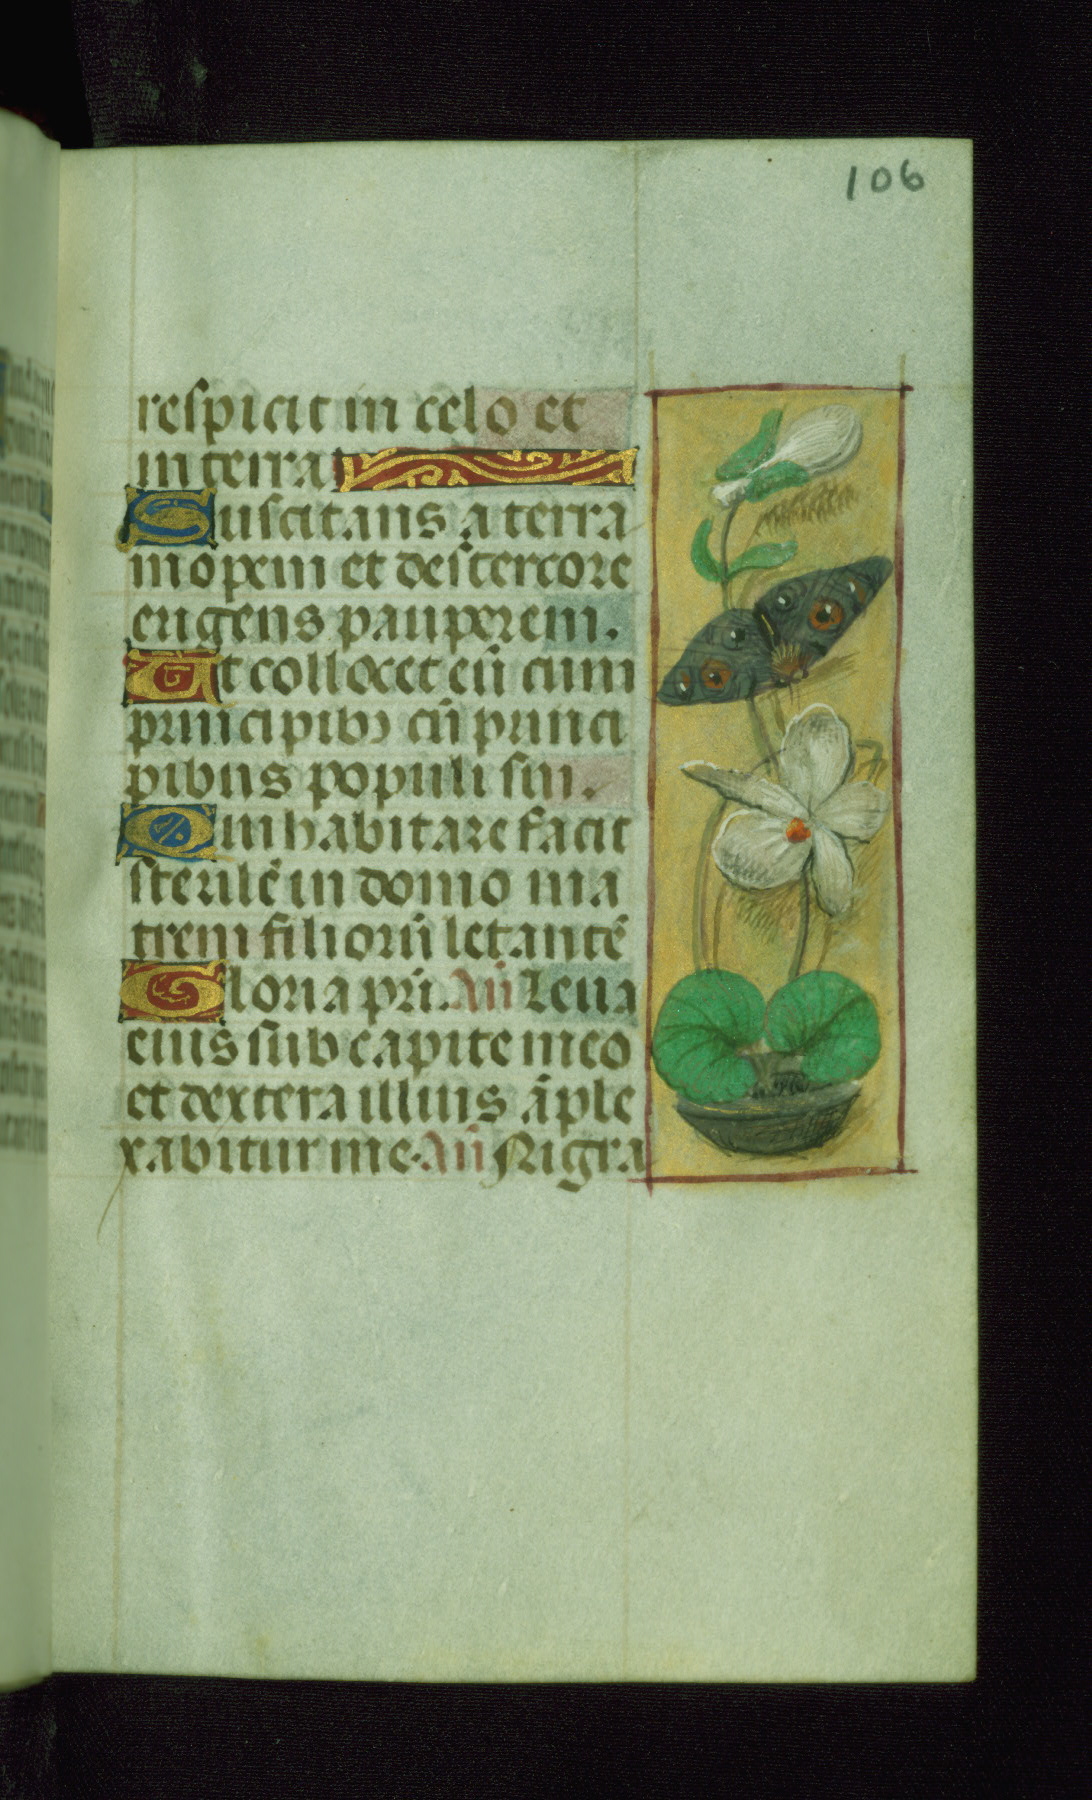 106
respicit in celo et
in terra
Suscitans a terra
inopem et de stercore
erigens pauperem.
Ut collocet eū cum
principibꝯ cū princi
pibus populi sui.
Qui habitare facit
sterilē in domo ma
trem filiorū letantē
Gloria pri. Añ Leua
eius sub capite meo
et dextera illius āple
xabitur me. Añ Nigra